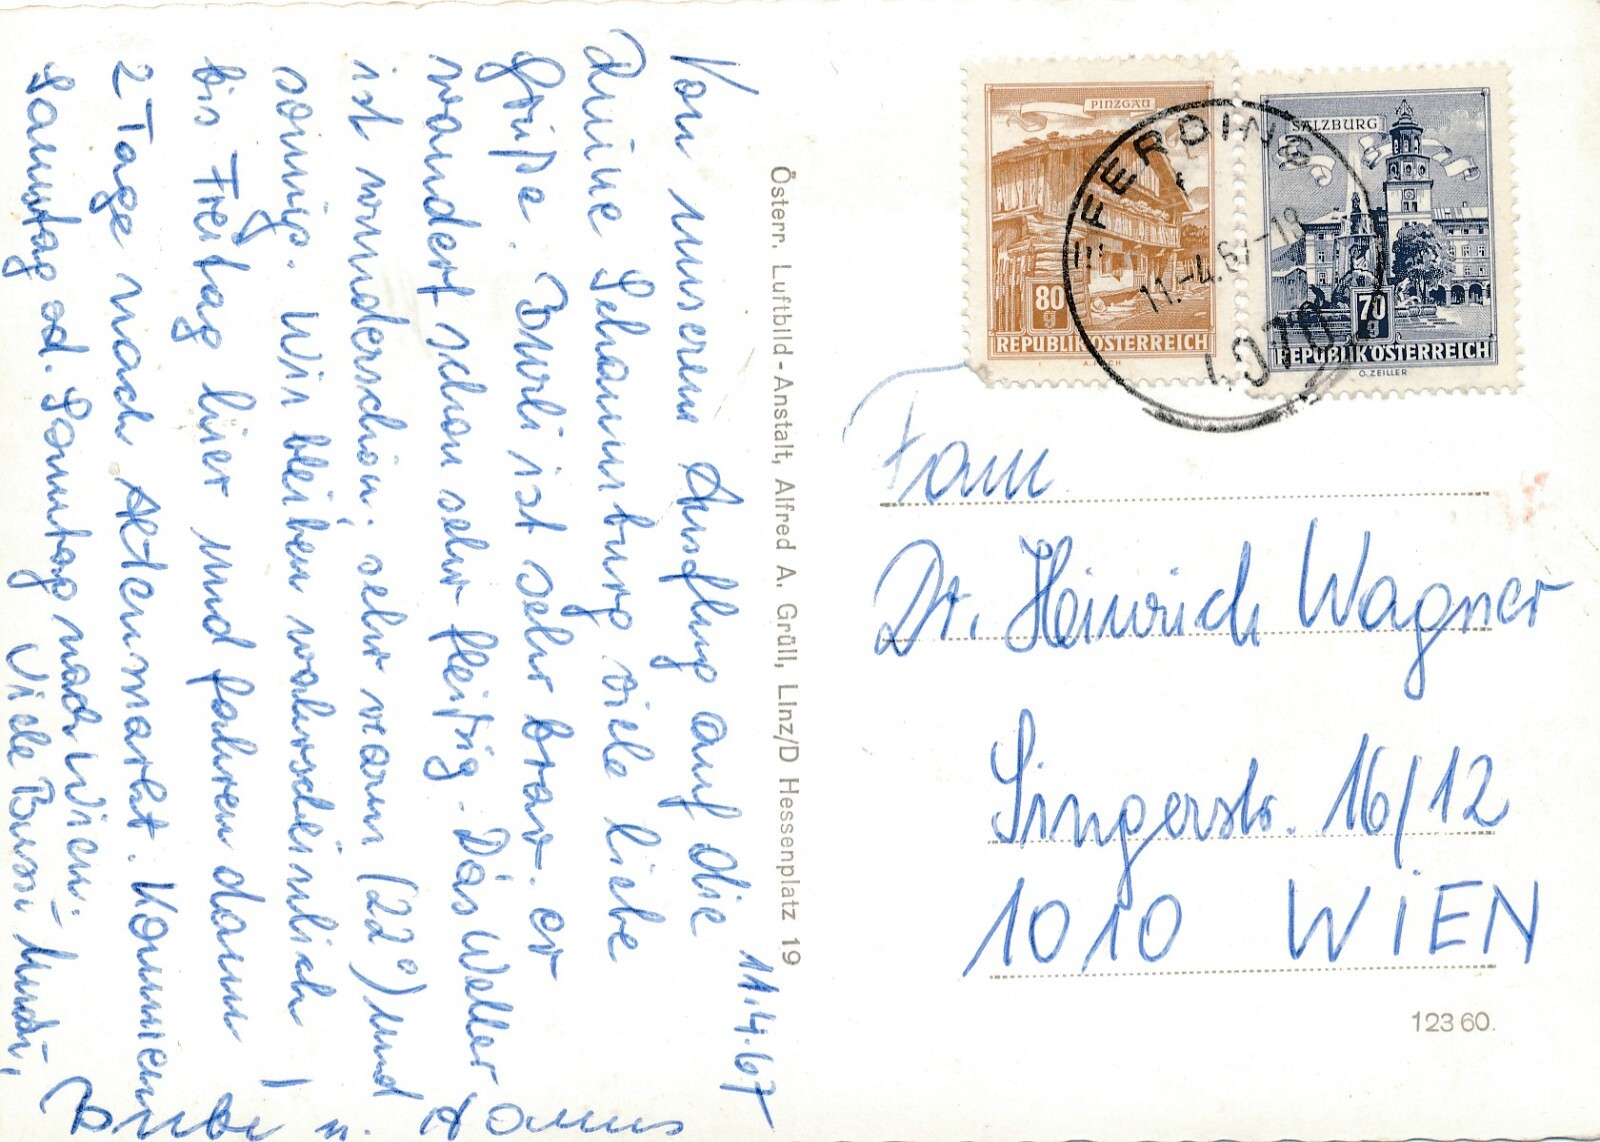 11.4.67
Von unserem Ausflug auf die
Ruine Schaumburg viele liebe
Grüße. Burli ist sehr brav. er
wandert schon sehr fleißig. Das Wetter
ist wunderschön, sehr warm (22°) und
sonnig. Wir bleiben wahrscheinlich
bis Freitag hier und fahren dann
2 Tage nach Altenmarkt. Kommen
Samstag od. Sonntag nach Wien.
Viele Bussi
u.
Österr. Luftbild-Anstalt, Alfred A. Grüll, Linz/D Hessenplatz 19
PINZGAU
80 g
REPUBLIK ÖSTERREICH
SALZBURG
70 g
REPUBLIK ÖSTERREICH
O. ZEILLER
EFERDING
11.-4.67-18
4070
Fam.
Dr. Heinrich Wagner
Singerstr. 16/12
1010 WIEN
123 60.